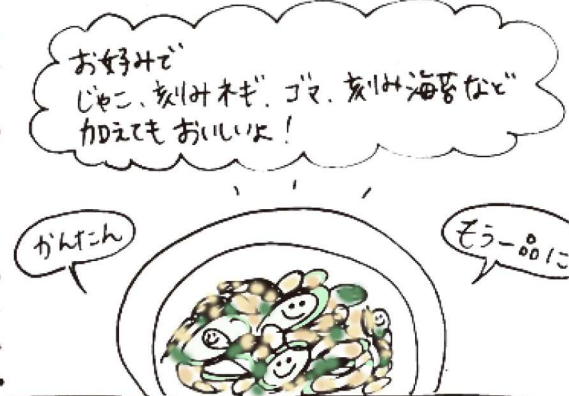 お好みで
じゃこ、刻みネギ、ゴマ、刻み海苔など
加えてもおいしいよ!
かんたん
もう一品に